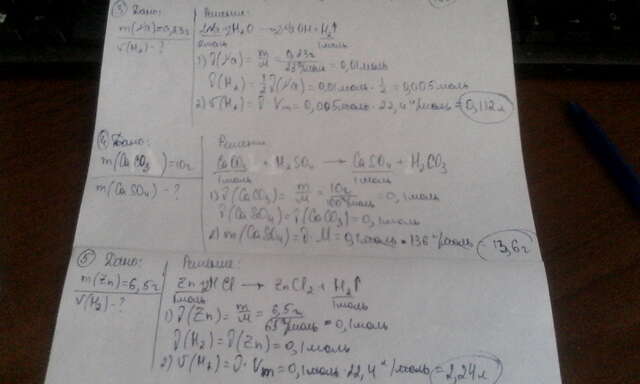 ③ Дано:
m(Na)=0,23г
V(H₂)-?
Решение:
2Na+2H₂O → 2NaOH+H₂↑
2моль 1моль
1) ν(Na) = m/M = 0,23г/23г/моль = 0,01моль
ν(H₂) = 1/2 ν(Na) = 0,01моль · 1/2 = 0,005моль
2) V(H₂) = ν · Vm = 0,005моль · 22,4л/моль = 0,112л
④ Дано:
m(CaCO₃)=10г
m(CaSO₄)-?
Решение
CaCO₃ + H₂SO₄ → CaSO₄ + H₂CO₃
1моль 1моль
1) ν(CaCO₃) = m/M = 10г/100г/моль = 0,1моль
ν(CaSO₄) = ν(CaCO₃) = 0,1моль
2) m(CaSO₄) = ν · M = 0,1моль · 136г/моль = 13,6г
⑤ Дано:
m(Zn)=6,5г
V(H₂)-?
Решение:
Zn+2HCl → ZnCl₂ + H₂↑
1моль 1моль
1) ν(Zn) = m/M = 6,5г/65г/моль = 0,1моль
ν(H₂) = ν(Zn) = 0,1моль
2) V(H₂) = ν · Vm = 0,1моль · 22,4л/моль = 2,24л